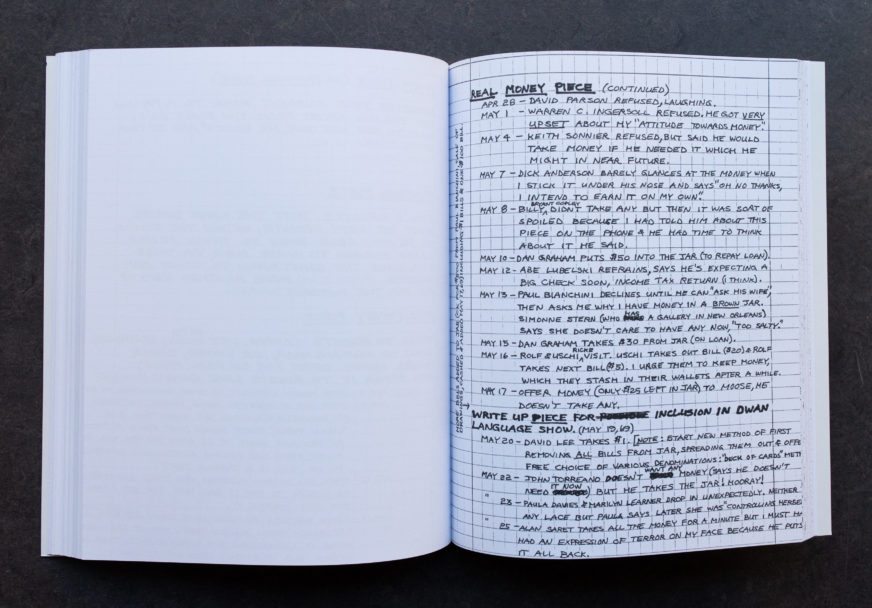 REAL MONEY PIECE (CONTINUED)
APR 28 - DAVID PARSON REFUSED, LAUGHING.
MAY 1 - WARREN C. INGERSOLL REFUSED. HE GOT VERY
UPSET ABOUT MY "ATTITUDE TOWARDS MONEY."
MAY 4 - KEITH SONNIER REFUSED, BUT SAID HE WOULD
TAKE MONEY IF HE NEEDED IT WHICH HE
MIGHT IN NEAR FUTURE.
MAY 7 - DICK ANDERSON BARELY GLANCES AT THE MONEY WHEN
I STICK IT UNDER HIS NOSE AND SAYS "OH NO THANKS,
I INTEND TO EARN IT ON MY OWN."
MAY 8 - BILLY BRYANT COPLEY DIDN'T TAKE ANY BUT THEN IT WAS SORT OF
SPOILED BECAUSE I HAD TOLD HIM ABOUT THIS
PIECE ON THE PHONE & HE HAD TIME TO THINK
ABOUT IT HE SAID.
MAY 10 - DAN GRAHAM PUTS $50 INTO THE JAR (TO REPAY LOAN).
MAY 12 - ABE LUBELSKI REFRAINS, SAYS HE'S EXPECTING A
BIG CHECK SOON, INCOME TAX RETURN (I THINK).
MAY 13 - PAUL BIANCHINI DECLINES UNTIL HE CAN "ASK HIS WIFE",
THEN ASKS ME WHY I HAVE MONEY IN A BROWN JAR.
SIMONNE STERN (WHO HAS A GALLERY IN NEW ORLEANS)
SAYS SHE DOESN'T CARE TO HAVE ANY NOW, "TOO SALTY."
MAY 15 - DAN GRAHAM TAKES $30 FROM JAR (ON LOAN).
MAY 16 - ROLF & USCHI RICKE VISIT. USCHI TAKES OUT BILL ($20) & ROLF
TAKES NEXT BILL ($5). I URGE THEM TO KEEP MONEY,
WHICH THEY STASH IN THEIR WALLETS AFTER A WHILE.
MAY 17 - OFFER MONEY (ONLY $25 LEFT IN JAR) TO MOOSE, HE
DOESN'T TAKE ANY.
WRITE UP PIECE FOR INCLUSION IN DWAN
LANGUAGE SHOW. (MAY 69)
MAY 20 - DAVID LEE TAKES $1. [NOTE: START NEW METHOD OF FIRST
REMOVING ALL BILLS FROM JAR, SPREADING THEM OUT & OFFE
FREE CHOICE OF VARIOUS DENOMINATIONS: "DECK OF CARDS" METH
MAY 22 - JOHN TORREANO DOESN'T WANT ANY MONEY (SAYS HE DOESN'T
NEED IT NOW) BUT HE TAKES THE JAR! HOORAY!
" 23 - PAULA DAVIES & MARILYN LEARNER DROP IN UNEXPECTEDLY. NEITHER
ANY LACE BUT PAULA SAYS LATER SHE WAS "CONTROLLING HERSE
" 25 - ALAN SARET TAKES ALL THE MONEY FOR A MINUTE BUT I MUST HA
HAD AN EXPRESSION OF TERROR ON MY FACE BECAUSE HE PUTS
IT ALL BACK.